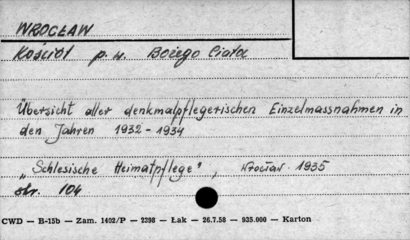 WROCŁAW
Kościół p. w. Bożego Ciała
Übersicht aller denkmalpflegerischen Einzelmassnahmen in
den Jahren 1932 - 1934
„Schlesische Heimatpflege", Wrocław 1935
str. 104
CWD — B-15b — Zam. 1402/P — 2298 — Łak — 26.7.58 — 935.000 — Karton